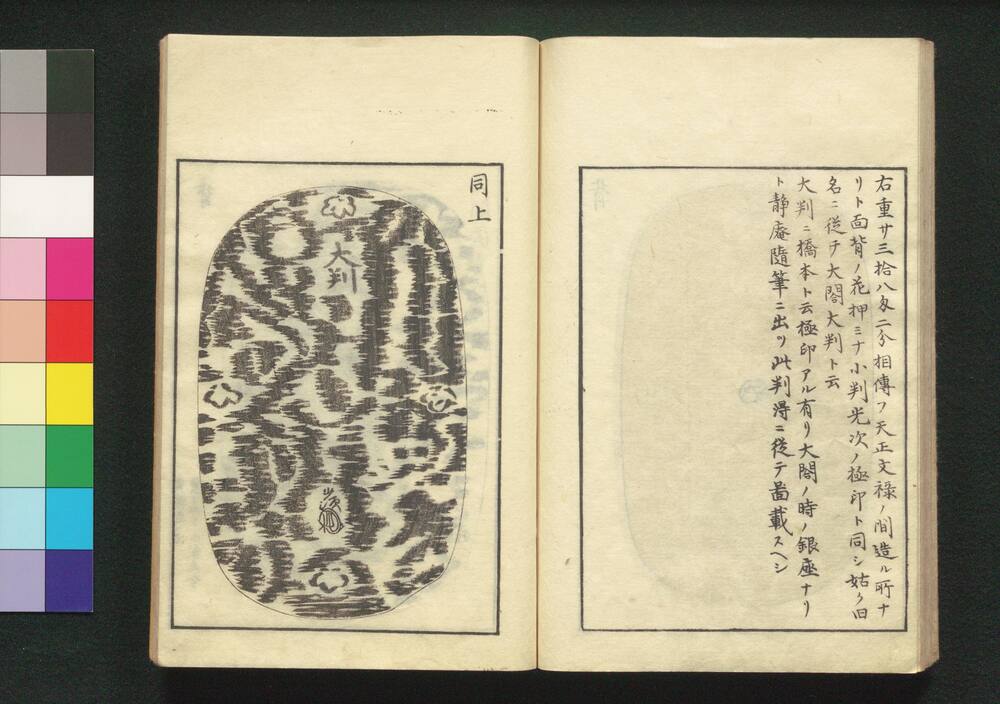 右重サ三拾八匁二分相傳フ天正文祿ノ間造ル所ナ
リト面背ノ花押ミナ小判光次ノ極印ト同シ姑ク旧
名ニ従テ大閤大判ト云
大判ニ橋本ト云極印アル有リ大閤ノ時ノ銀座ナリ
ト静庵隨筆ニ出ツ此判得ニ従テ啚載スヘシ
同上
大判